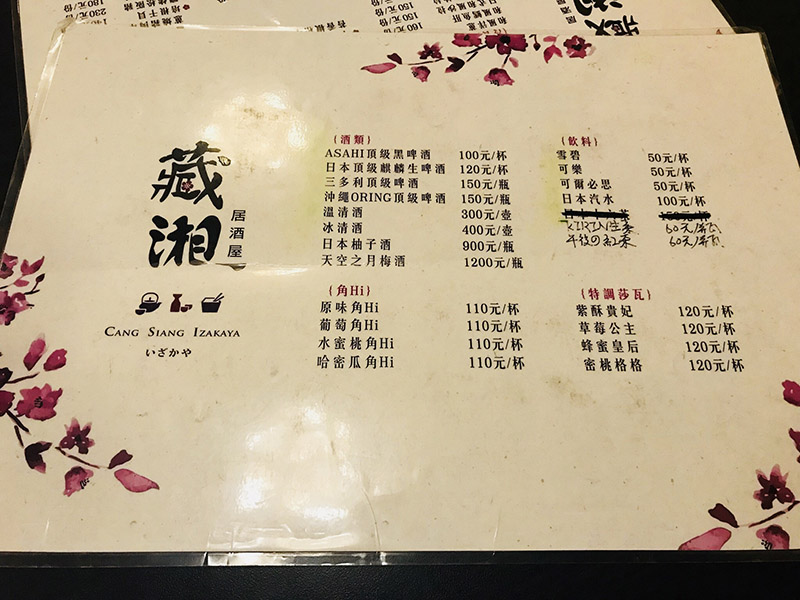 藏湘
居酒屋
CANG SIANG IZAKAYA
いざかや
{酒類}
ASAHI頂級黑啤酒 100元/杯
日本頂級麒麟生啤酒 120元/杯
三多利頂級啤酒 150元/瓶
沖繩ORING頂級啤酒 150元/瓶
溫清酒 300元/壺
冰清酒 400元/壺
日本柚子酒 900元/瓶
天空之月梅酒 1200元/瓶
{角Hi}
原味角Hi 110元/杯
葡萄角Hi 110元/杯
水蜜桃角Hi 110元/杯
哈密瓜角Hi 110元/杯
{飲料}
雪碧 50元/杯
可樂 50元/杯
可爾必思 50元/杯
日本汽水 100元/杯
KIRIN生茶 60元/瓶
午後の紅茶 60元/瓶
{特調莎瓦}
紫酥貴妃 120元/杯
草莓公主 120元/杯
蜂蜜皇后 120元/杯
密桃格格 120元/杯